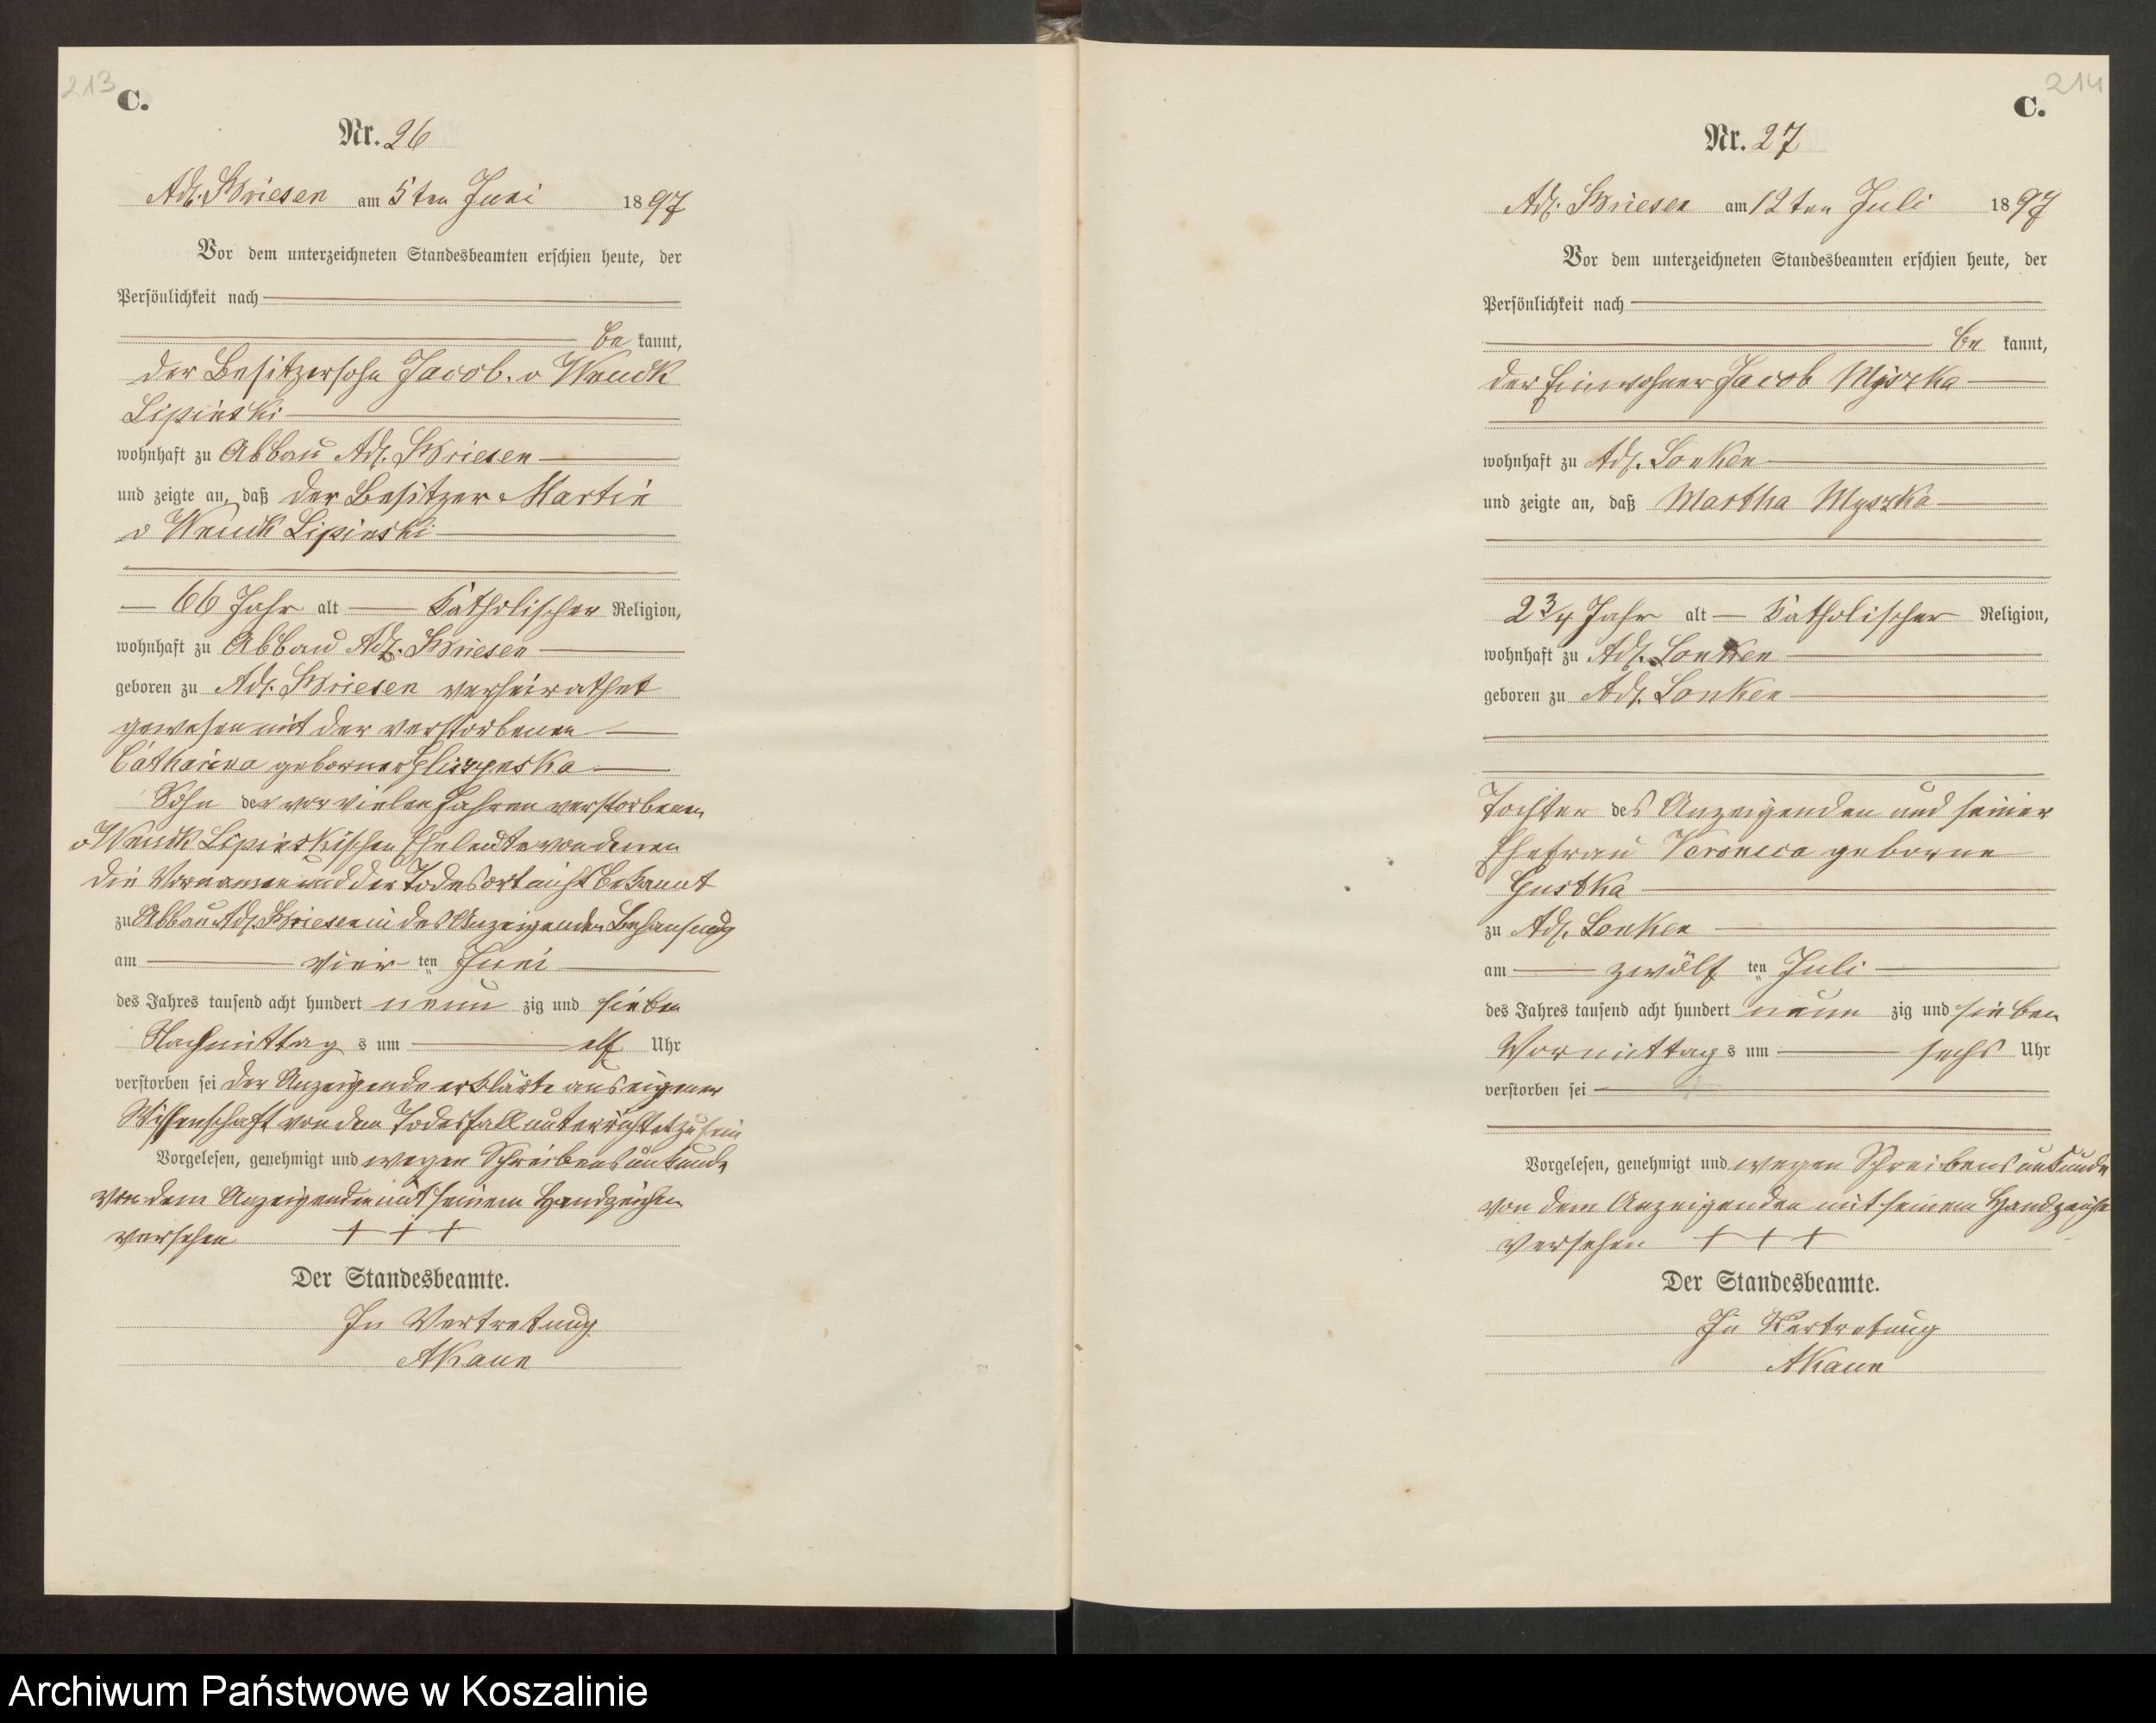 213
C.
Nr. 26
Adl. Briesen am 5ten Juni 1897
Vor dem unterzeichneten Standesbeamten erschien heute, der
Persönlichkeit nach
be kannt,
der Besitzersohn Jacob. v Wendk
Lipinski
wohnhaft zu Abbau Adl. Briesen
und zeigte an, daß der Besitzer Martin
v Wendk Lipinski
66 Jahr alt Katholischer Religion,
wohnhaft zu Abbau Adl. Briesen
geboren zu Adl. Briesen verheirathet
gewesen mit der verstorbenen
Catharina geborner
Sohn der vor vielen Jahren verstorbenen
v Wendk Lipinskischen Eheleute von denen
die Vornamen und der Todesort nicht bekannt
zu Abbau Adl. Briesen in des Anzeigenden Behausung
am vier ten Juni
des Jahres tausend acht hundert neun zig und sieben
Nachmittag s um elf Uhr
verstorben sei der Anzeigende erklärte aus eigener
Wissenschaft von dem Todesfall unterrichtet zu sein
Vorgelesen, genehmigt und wegen Schreibensunkunde
von dem Anzeigenden mit seinem Handzeichen
versehen + + +
Der Standesbeamte.
In Vertretung
AKaun
214
C.
Nr. 27
Adl. Briesen am 12ten Juli 1897
Vor dem unterzeichneten Standesbeamten erschien heute, der
Persönlichkeit nach
be kannt,
der Einwohner Jacob Myszka
wohnhaft zu Adl. Lonken
und zeigte an, daß Martha Myszka
2 3/4 Jahr alt Katholischer Religion,
wohnhaft zu Adl. Lonken
geboren zu Adl. Lonken
Tochter des Anzeigenden und seiner
Ehefrau Veronica geborne
Gustka
zu Adl. Lonken
am zwölf ten Juli
des Jahres tausend acht hundert neun zig und sieben
Vormittag s um sechs Uhr
verstorben sei
Vorgelesen, genehmigt und wegen Schreibensunkunde
von dem Anzeigenden mit seinem Handzeichen
versehen + + +
Der Standesbeamte.
In Vertretung
AKaun
Archiwum Państwowe w Koszalinie